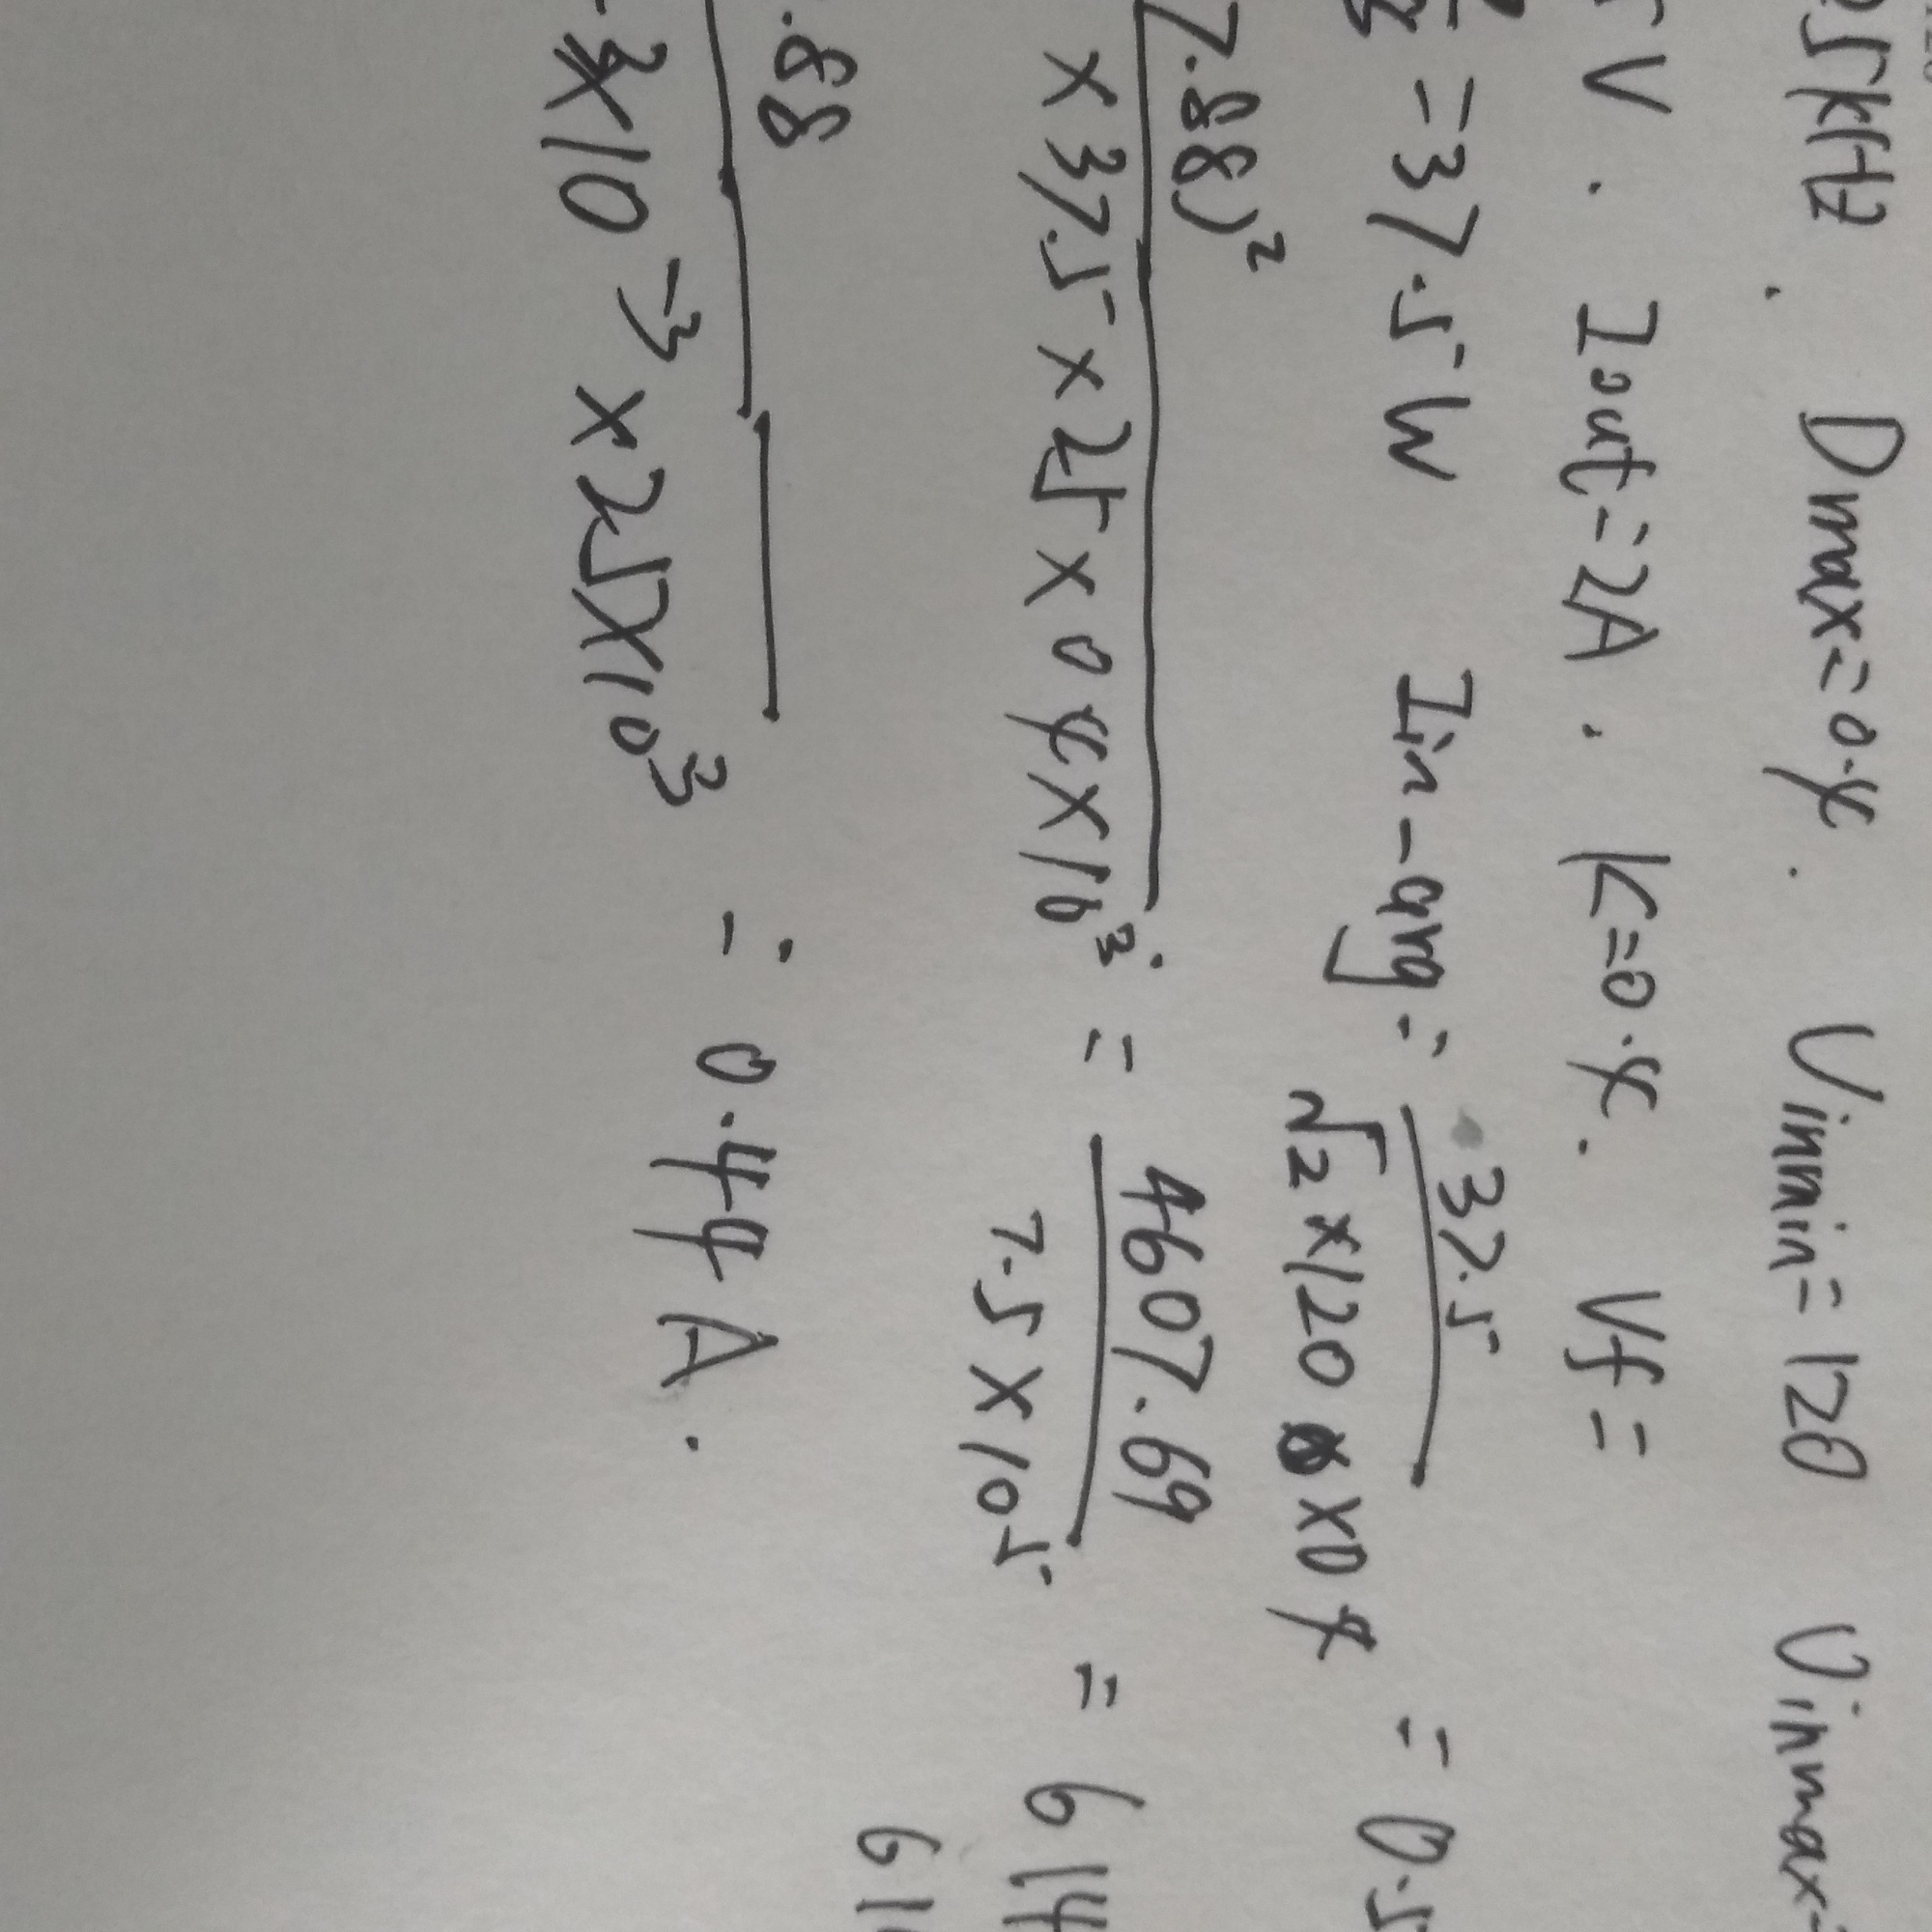 5kHz. Dmax=0.4. Vinmin=120 Vinmax
V. Iout=2A. K=0.4. Vf=
=37.5W Iin-avg= 37.5 / √2×120×0.4 = 0.5
7.88)² / ×37.5×25×0.4×10³ = 4607.69 / 7.5×10⁵ = 614
61
.88 / ×10⁻³×25×10³ = 0.44A.